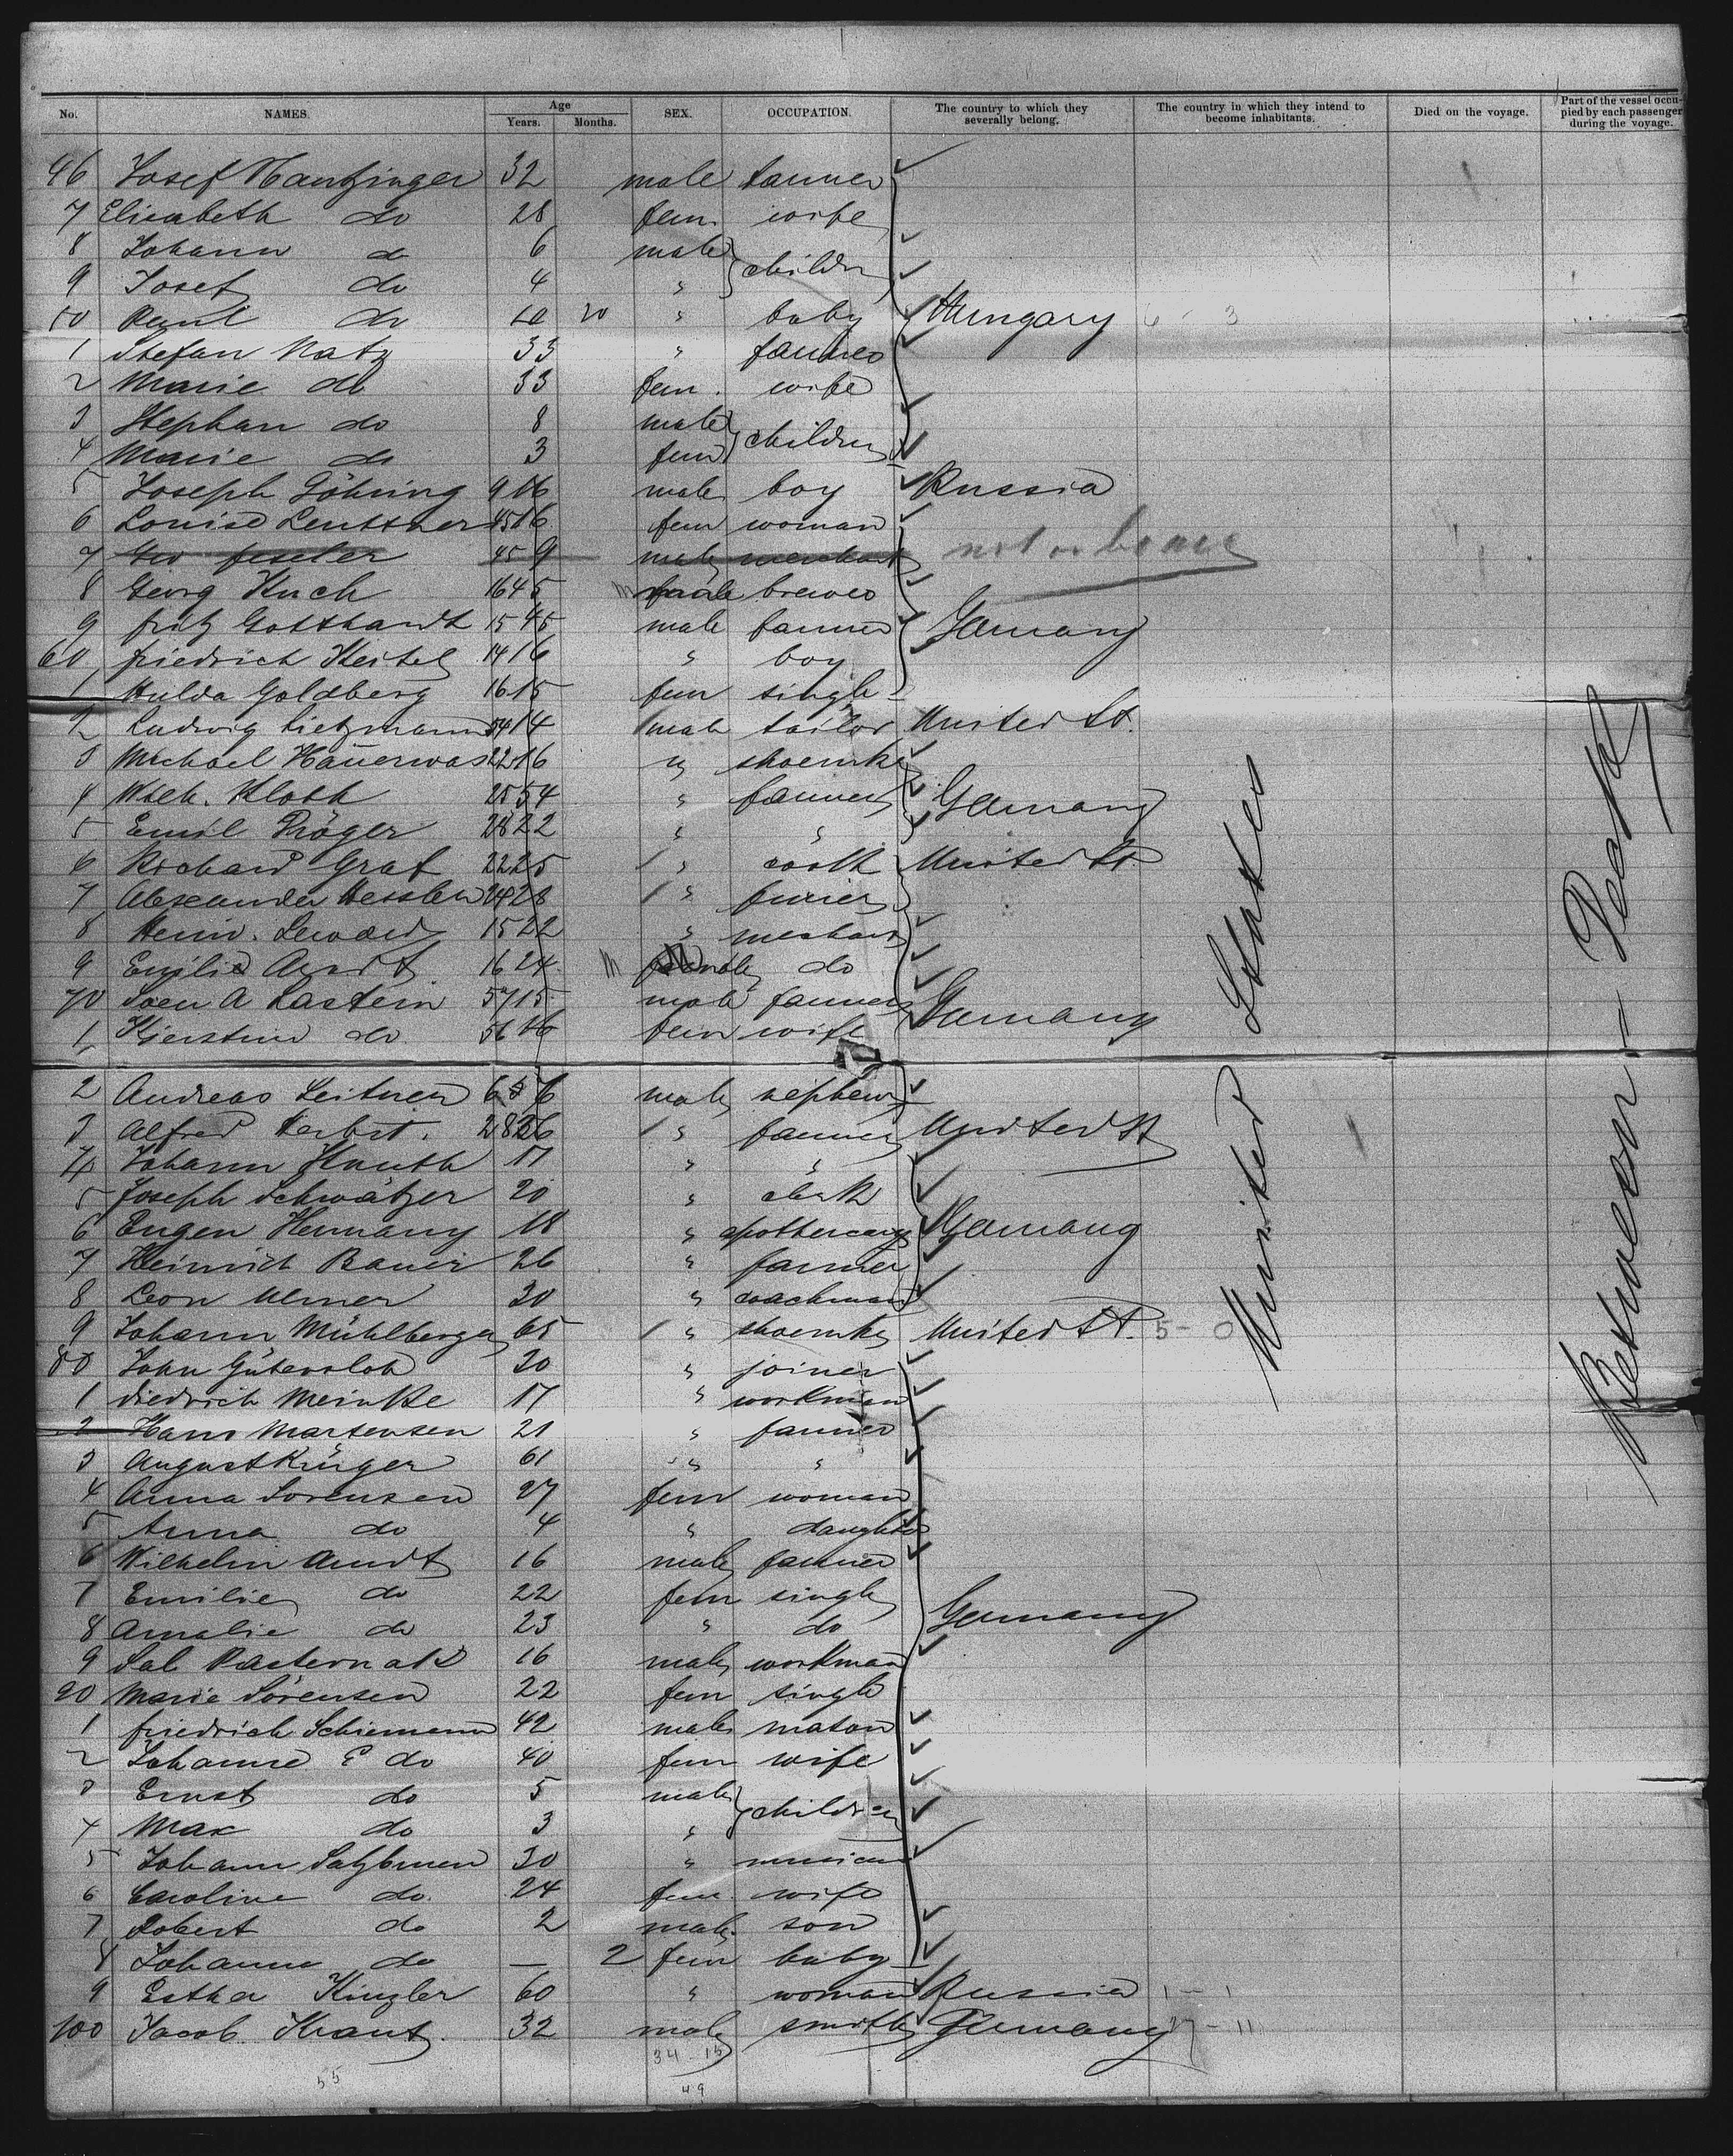 No. NAMES. Age Years. Months. SEX. OCCUPATION. The country to which they severally belong. The country in which they intend to become inhabitants. Died on the voyage. Part of the vessel occupied by each passenger during the voyage.
46 Josef 32 male farmer
7 Elisabeth do 28 fem. wife
8 Johann do 6 male
9 Josef do 4 " children
50 do 10 " baby Hungary 6 - 3
1 Stefan Katz 33 " farmer
2 Marie do 33 fem. wife
3 Stephan do 8 male
4 Marie do 3 fem children
5 Joseph Göhring 9 16 male boy Russia
6 Louise Leuttner 45 16 fem woman
7 Geo feseler 45 9 male merchant not on board
8 Georg Kuch 16 45 male brewer
9 fritz Gotthardt 15 45 male farmer Germany
60 friedrich Keitel 14 16 " boy
1 Hulda Goldberg 16 15 fem single
2 Ludwig Lietzmann 54 14 male tailor United St.
3 Michael Häuerwas 22 16 " shoemkr
4 Wilh. Kloth 25 54 " farmer Germany
5 Emil Pröger 28 22 " "
6 Richard Graf 22 25 " cook United St
7 Alexander Hessler 24 28 " furier
8 Heinr. Lewald 15 22 " merchant
9 Emilie Arndt 16 24 M do
70 Sven A Rastein 57 15 male farmer Germany
1 Kjerstine do 56 16 fem wife
2 Andreas Leitner 6 male nephew
3 Alfred Herbst. 28 26 " farmer United St
4 Johann Knuth 17 " "
5 Joseph Schwätzer 20 " clerk
6 Eugen Hermany 18 " apothercary Germany
7 Heinrich Bauer 26 " farmer
8 Leon Ulmer 30 " coachman
9 Johann Mühlberger 65 " shoemkr United St. 5 - 0
80 John Gütersloh 30 " joiner
1 diedrich Meinke 17 " workman
2 Hans Martensen 21 " farmer
3 August Krüger 61 " "
4 Anna Sorensen 27 fem woman
5 Anna do 4 " daughter
6 Wilhelm Arndt 16 male farmer
7 Emilie do 22 fem single
8 Amalie do 23 " do Germany
9 Sal Pasternak 16 male workman
90 Marie Sörensen 22 fem single
1 friedrich Schiemann 42 male mason
2 Johanne E do 40 fem wife
3 Ernst do 5 male
4 Max do 3 " children
5 Johann 30 " musican
6 Caroline do. 24 fem. wife
7 Robert do 2 male. son
8 Johanne do — 2 fem baby
9 Esther Kinzler 60 " woman Russia 1 - 1
100 Jacob Krantz. 32 male smith Germany 27 - 11
34 - 15
55
49
United States
Between Decks